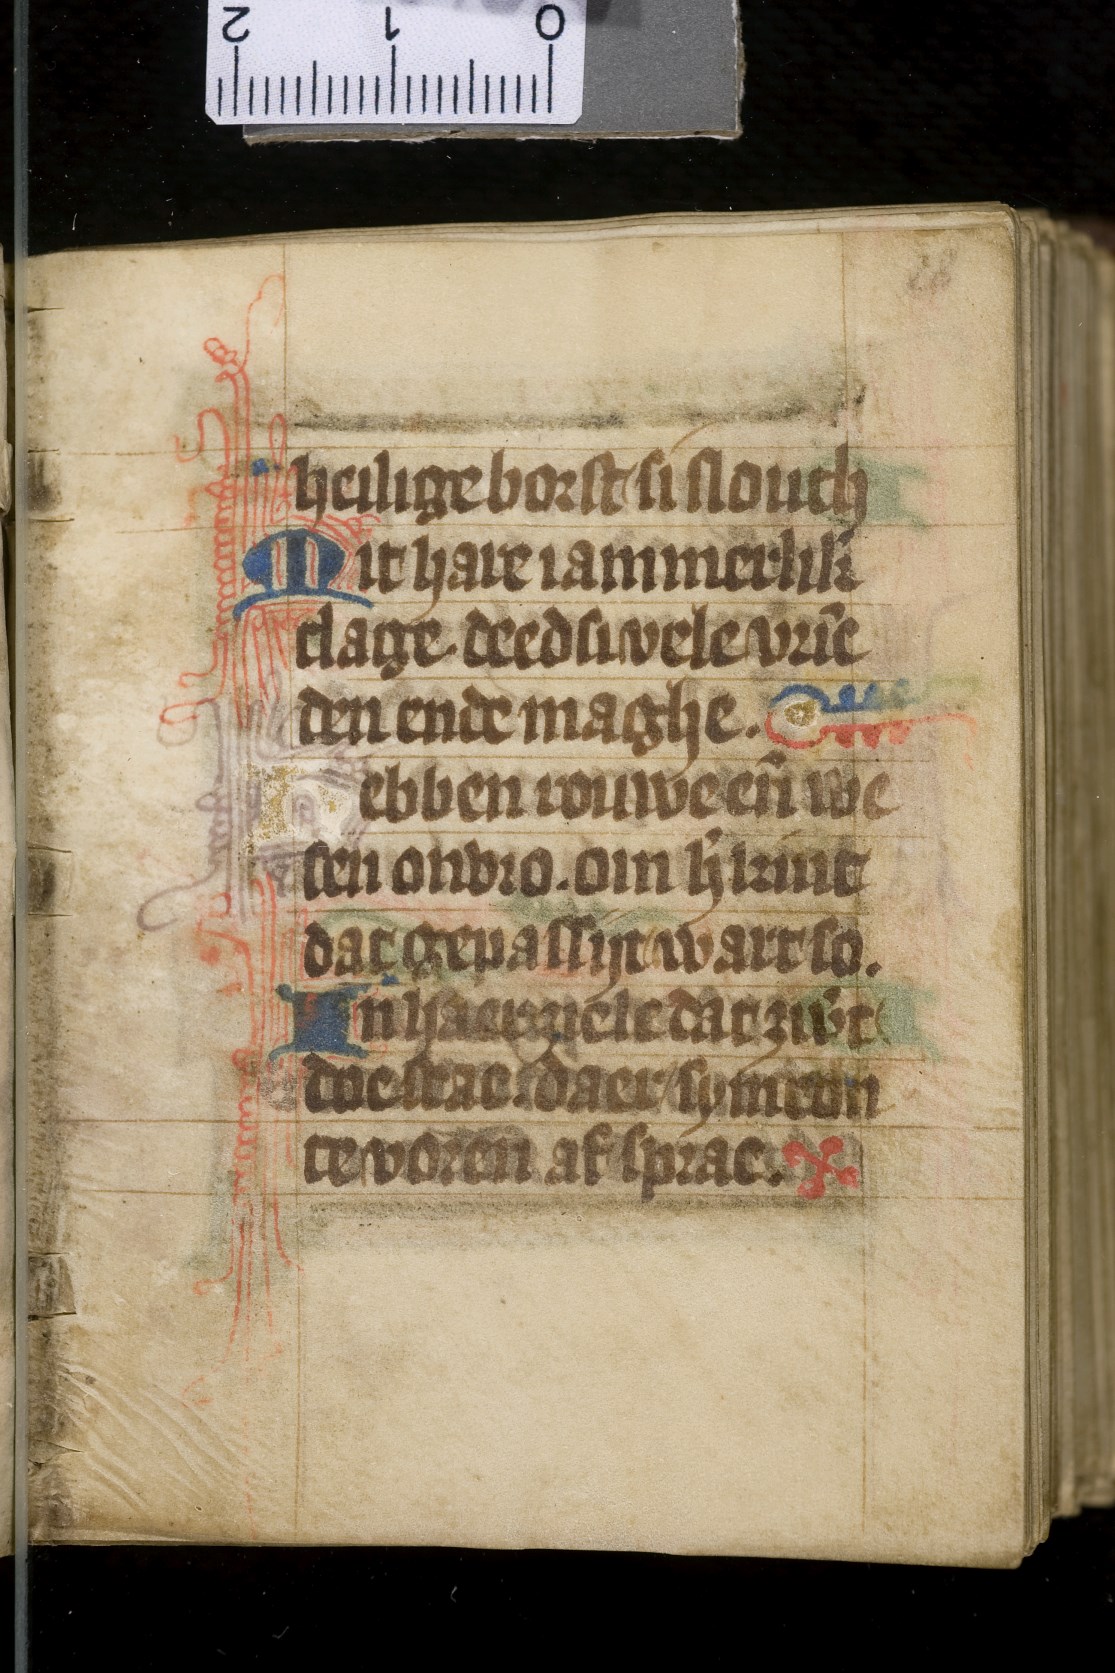 2 1 0
28
heilige borst si slouch
Mit hare iammerlik̄
clage. deed si vele vriē
den ende maghe.
Hebben rouwe eñ we
sen onvro. om h̾ kint
dat gepassijt wart so.
In haer ziele dat zw̾t
doe stac. daer symeon
te voren af sprac.